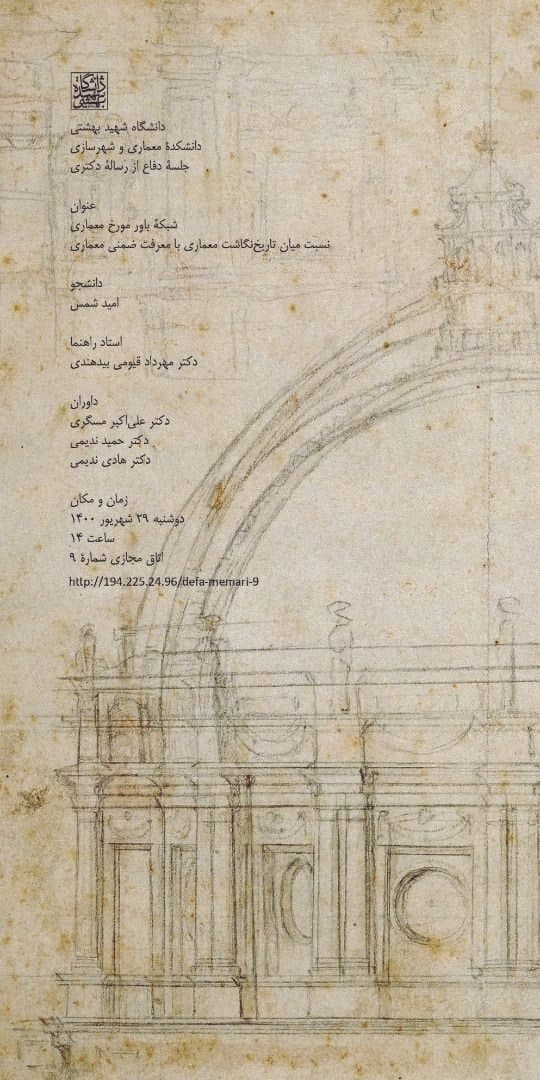 دانشگاه شهید بهشتی
دانشگاه شهید بهشتی
دانشکدهٔ معماری و شهرسازی
جلسهٔ دفاع از رسالهٔ دکتری
عنوان
شبکهٔ یاور مورخ معماری
نسبت میان تاریخ‌نگاشت معماری با معرفت ضمنی معماری
دانشجو
امید شمس
استاد راهنما
دکتر مهرداد قیومی بیدهندی
داوران
دکتر علی‌اکبر مسگری
دکتر حمید ندیمی
دکتر هادی ندیمی
زمان و مکان
دوشنبه ۲۹ شهریور ۱۴۰۰
ساعت ۱۴
اتاق مجازی شمارهٔ ۹
http://194.225.24.96/defa-memari-9